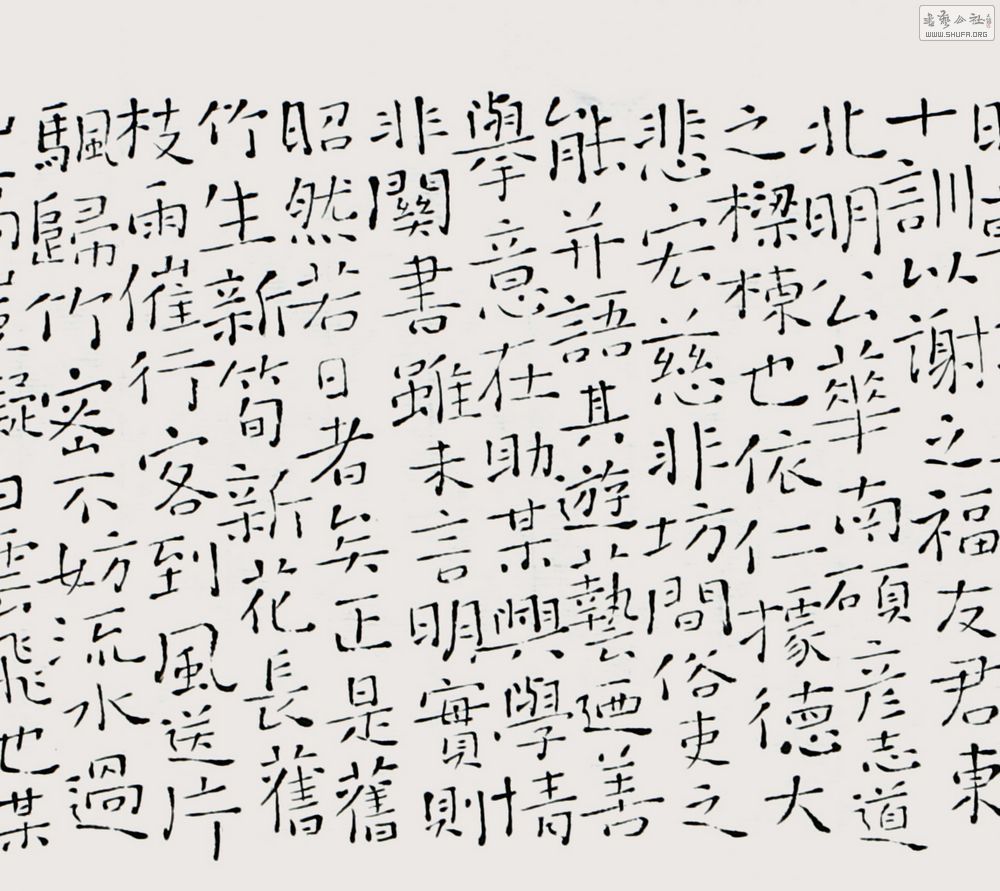 十訓以謝之福友君東
北明公華南碩彦志道
之樑棟也依仁據德大
悲宏慈非坊間俗吏之
能并語其遊藝廼善
舉意在助某興學情
非關書雖未言明實則
昭然若日者矣正是舊
竹生新筍新花長舊
枝雨催行客到風送片
颿歸竹密不妨流水過
高豈礙白雲飛也某
書藝公社
WWW.SHUFA.ORG